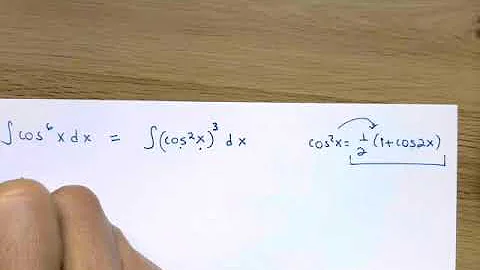 ∫cos⁶xdx = ∫(cos²x)³dx cos²x=½(1+cos2x)